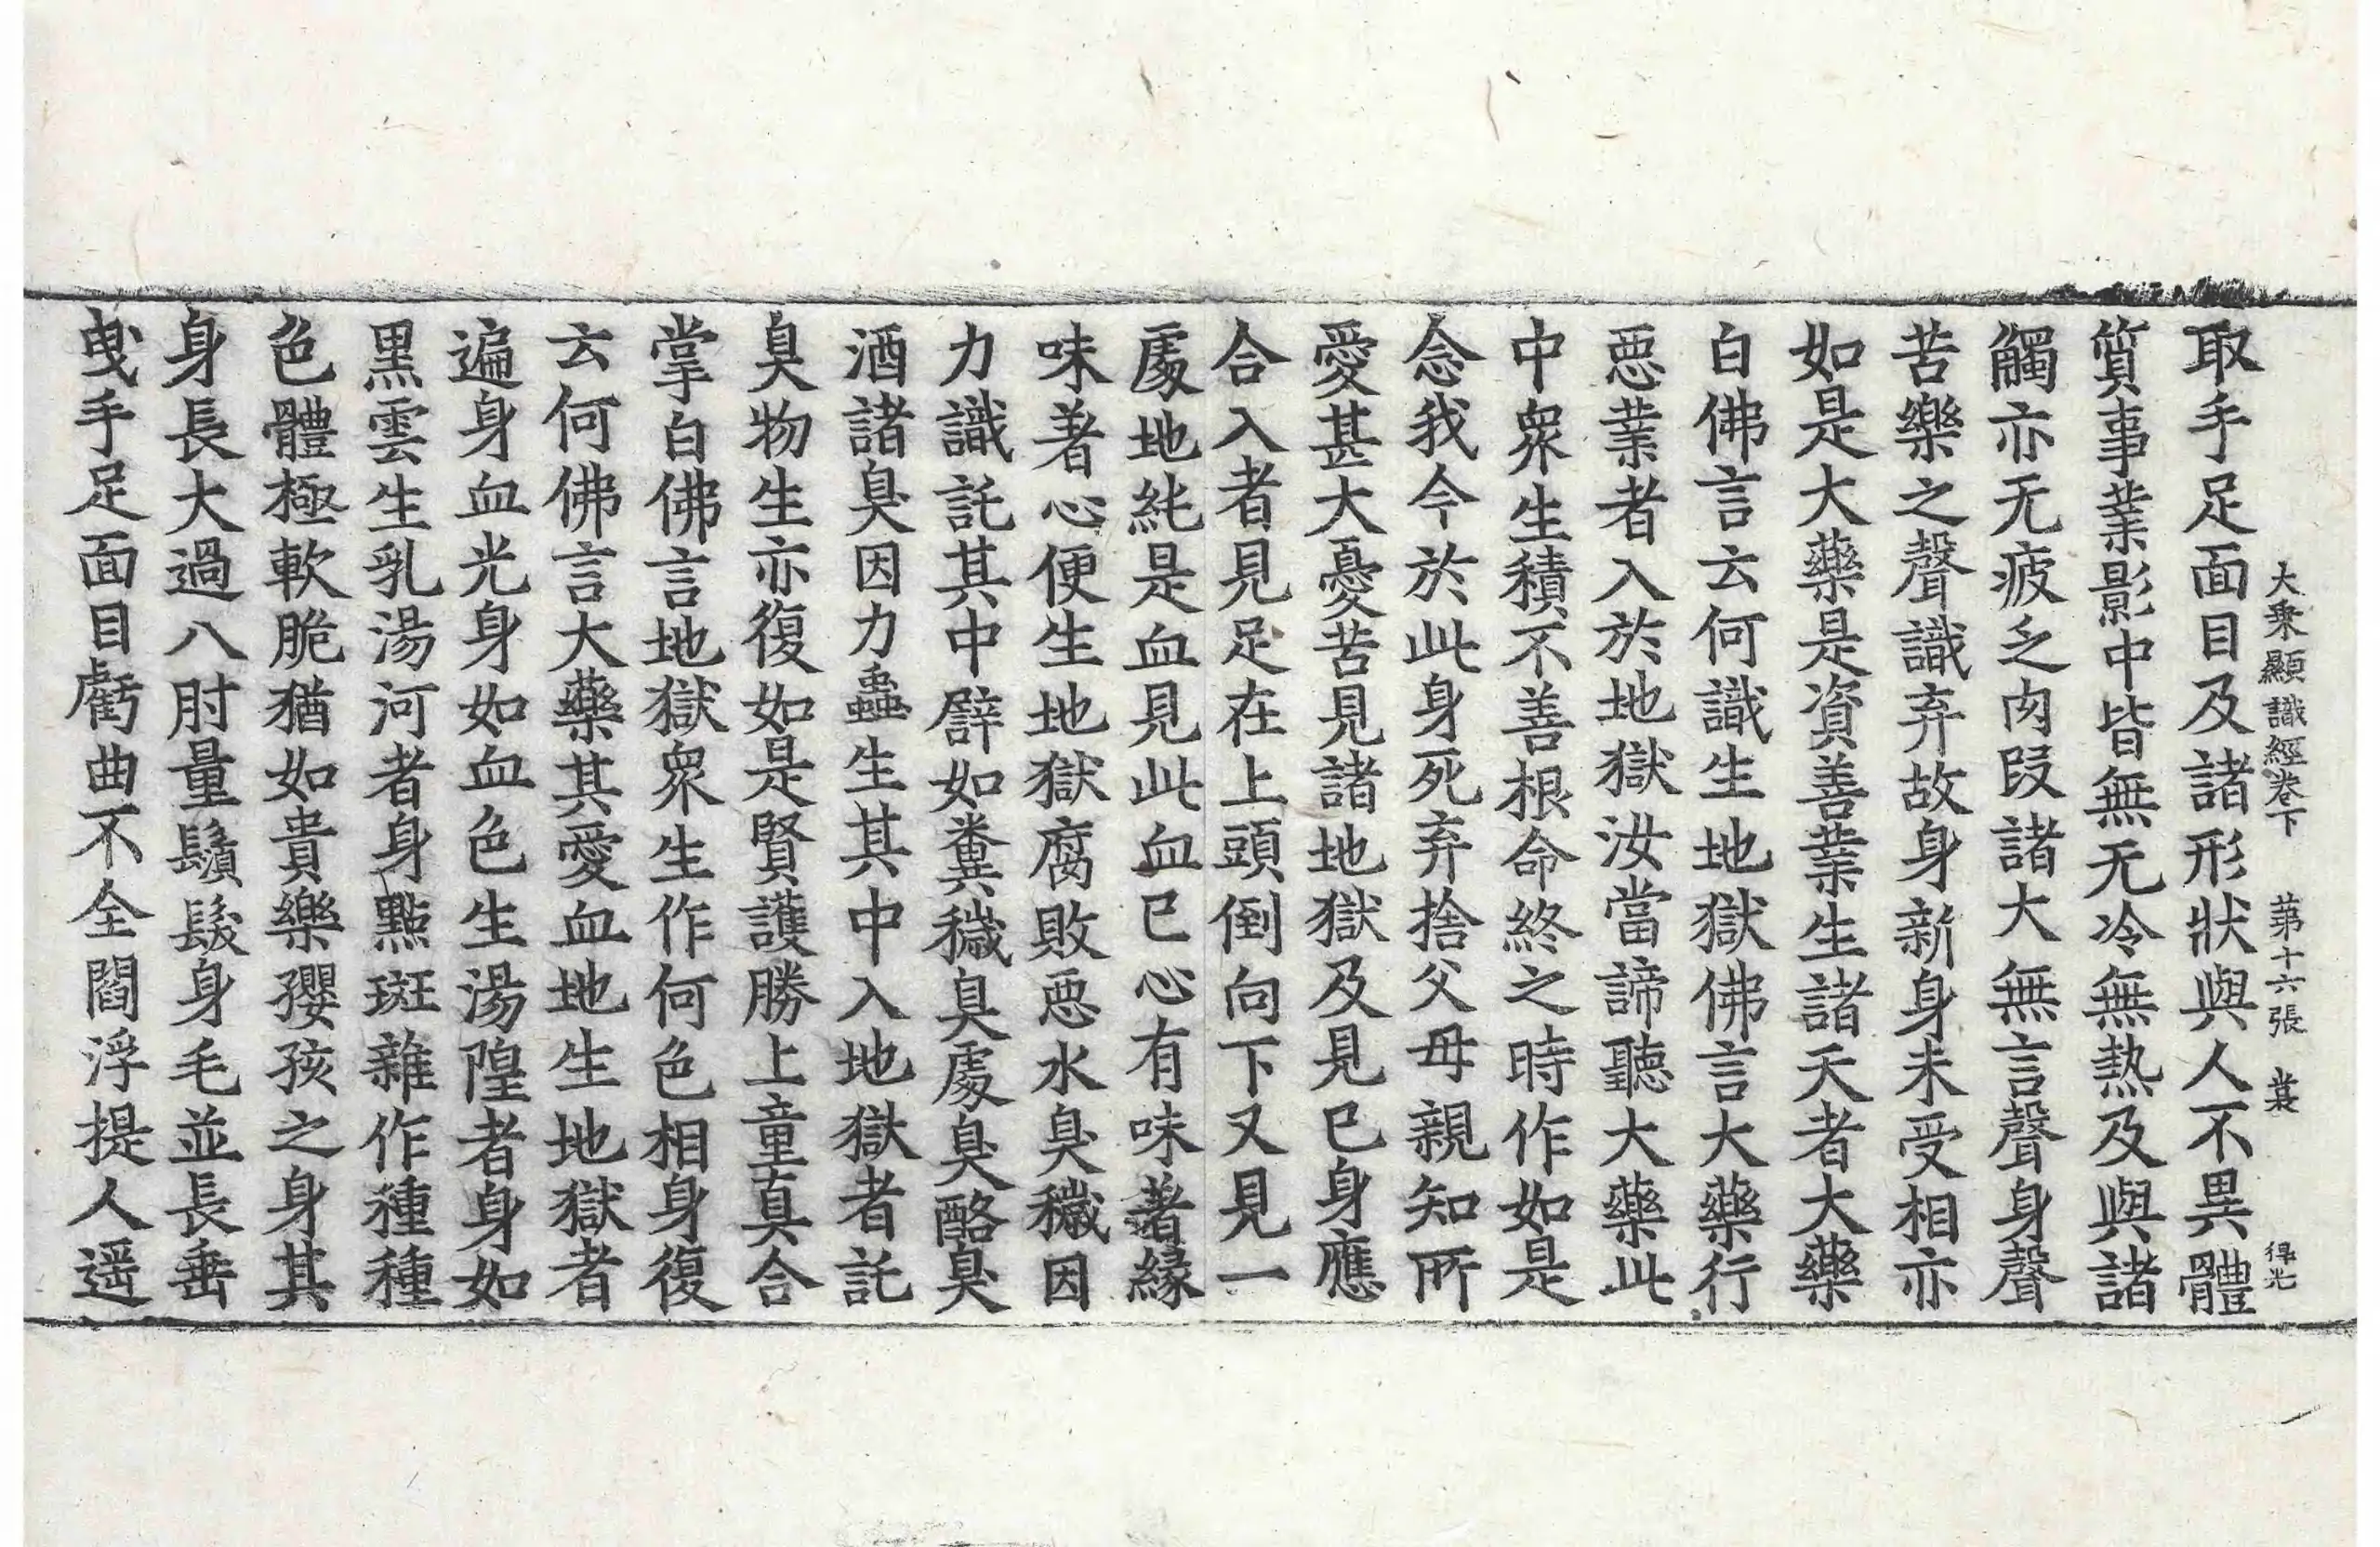 大乗顯識經卷下 苐十六張 裳 得光
取手足面目及諸形狀與人不異體
質事業影中皆無无冷無熱及與諸
觸亦无疲乏肉段諸大無言聲身聲
苦樂之聲識弃故身新身未受相亦
如是大藥是資善業生諸天者大藥
白佛言云何識生地獄佛言大藥行
惡業者入於地獄汝當諦聽大藥此
中衆生積不善根命終之時作如是
念我今於此身死弃捨父母親知所
愛甚大憂苦見諸地獄及見已身應
合入者見足在上頭倒向下又見一
處地純是血見此血已心有味著緣
味著心便生地獄腐敗惡水臭穢因
力識託其中譬如糞穢臭處臭酪臭
酒諸臭因力蟲生其中入地獄者託
臭物生亦復如是賢護勝上童真合
掌白佛言地獄衆生作何色相身復
云何佛言大藥其愛血地生地獄者
遍身血光身如血色生湯隍者身如
黒雲生乳湯河者身點斑雜作種種
色體極軟脆猶如貴樂孾孩之身其
身長大過八肘量鬚髮身毛並長垂
曳手足面目虧曲不全閻浮提人遥